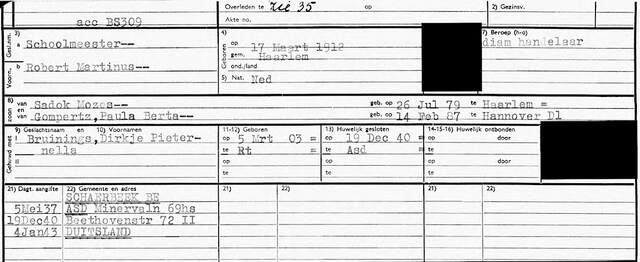 Overleden te Zie 35 op
2) Gezinsv.
acc BS309
Akte no.
3)
Gesl.nm.
a Schoolmeester--
4)
Geboren
op 17 Maart 1912
gem. Haarlem
ond./land
7) Beroep (h-a)
diam handelaar
Voorn.
b Robert Martinus--
5) Nat. Ned
8) van Sadok Mozes-- geb. op 26 Jul 79 te Haarlem =
zoon en van Gompertz, Paula Berta-- geb. op 14 Feb 87 te Hannover Dl
9) Geslachtsnaam en 10) Voornamen
11-12) Geboren
13) Huwelijk gesloten
14-15-16) Huwelijk ontbonden
Gehuwd met
1 Bruinings, Dirkje Pieter-
nella
op 5 Mrt 03 =
te Rt =
op 19 Dec 40 =
te Asd =
op door
te
2
op door
te
21) Dagt. aangifte 22) Gemeente en adres
21) 22)
21) 22)
SCHAERBEEK BE
5Mei37 ASD Minervaln 69hs
19Dec40 Beethovenstr 72 II
4Jan43 DUITSLAND